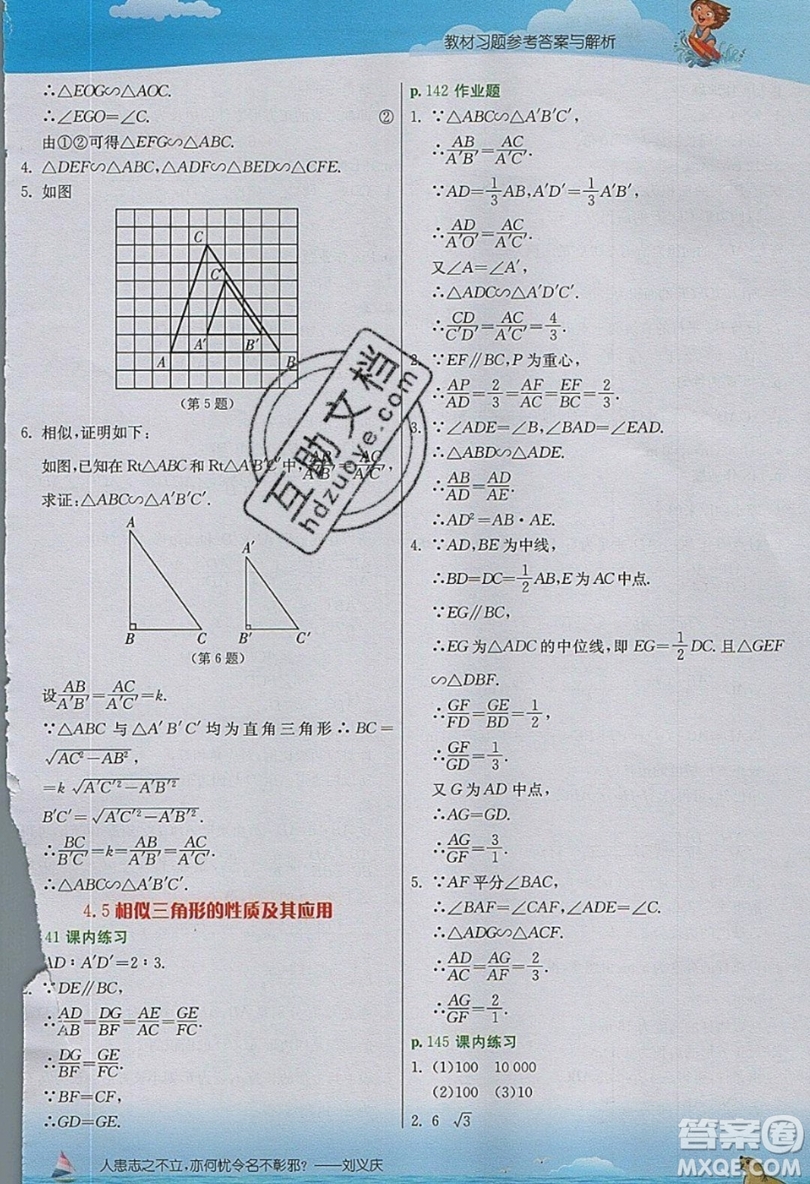 教材习题参考答案与解析
∴△EOG∽△AOC.
∴∠EGO=∠C. ②
由①②可得△EFG∽△ABC.
4. △DEF∽△ABC,△ADF∽△BED∽△CFE.
5. 如图
C
C'
A' B'
A B
(第5题)
6. 相似,证明如下:
如图,已知在Rt△ABC和Rt△A'B'C'中,AB/A'B'=AC/A'C',
求证:△ABC∽△A'B'C'.
A
A'
B C B' C'
(第6题)
设AB/A'B'=AC/A'C'=k.
∵△ABC与△A'B'C'均为直角三角形∴BC=
√(AC²-AB²),
=k√(A'C'²-A'B'²)
B'C'=√(A'C'²-A'B'²).
∴BC/B'C'=k=AB/A'B'=AC/A'C'.
∴△ABC∽△A'B'C'.
4.5 相似三角形的性质及其应用
41 课内练习
AD:A'D'=2:3.
∵DE∥BC,
∴AD/AB=DG/BF=AE/AC=GE/FC.
∴DG/BF=GE/FC.
∵BF=CF,
∴GD=GE.
p.142 作业题
1. ∵△ABC∽△A'B'C',
∴AB/A'B'=AC/A'C'.
∵AD=1/3AB,A'D'=1/3A'B',
∴AD/A'O'=AC/A'C'.
又∠A=∠A',
∴△ADC∽△A'D'C'.
∴CD/C'D'=AC/A'C'=4/3.
2. ∵EF∥BC,P为重心,
∴AP/AD=2/3=AF/AC=EF/BC=2/3.
3. ∵∠ADE=∠B,∠BAD=∠EAD.
∴△ABD∽△ADE.
∴AB/AD=AD/AE.
∴AD²=AB·AE.
4. ∵AD,BE为中线,
∴BD=DC=1/2AB,E为AC中点.
∵EG∥BC,
∴EG为△ADC的中位线,即EG=1/2DC.且△GEF
∽△DBF.
∴GF/FD=GE/BD=1/2.
∴GF/GD=1/3.
又G为AD中点,
∴AG=GD.
∴AG/GF=3/1.
5. ∵AF平分∠BAC,
∴∠BAF=∠CAF.又∠ADE=∠C.
∴△ADG∽△ACF.
∴AD/AC=AG/AF=2/3.
∴AG/GF=2/1.
p.145 课内练习
1. (1)100 10 000
(2)100 (3)10
2. 6 √3
人患志之不立,亦何忧令名不彰邪?——刘义庆
互助文档
hdzuoye.com
答案圈
MXQE.COM